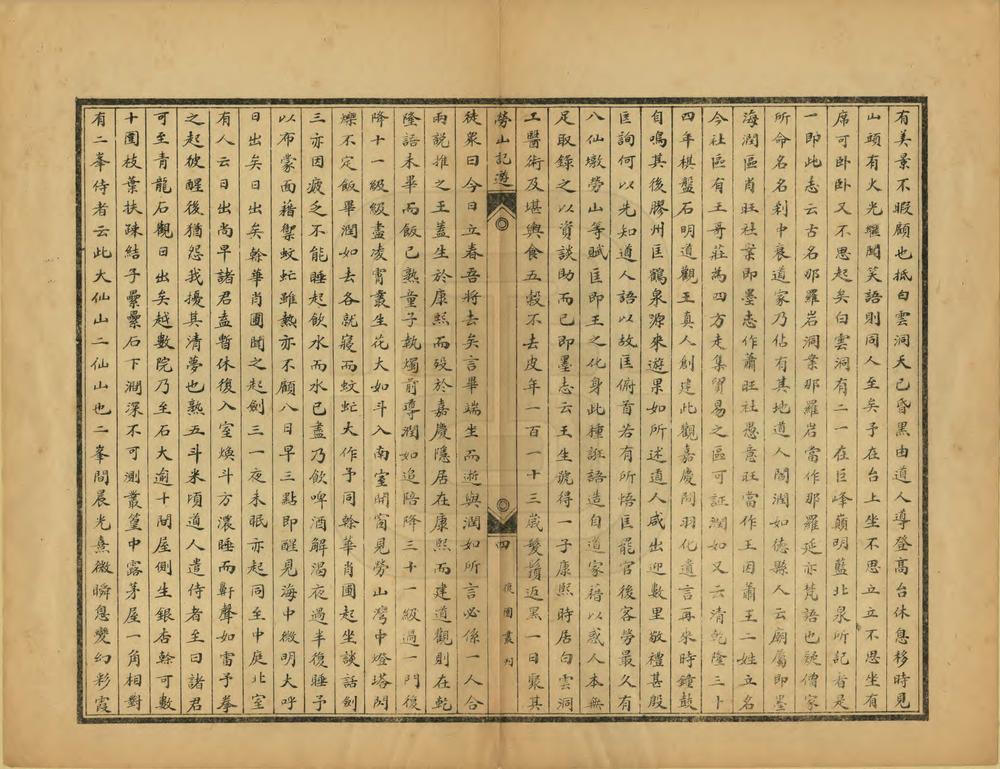 有美景不暇顧也抵白雲洞天已昏黑由道人導登高台休息移時見
山頭有火光繼聞笑語則同人至矣予在台上坐不思立立不思坐有
席可卧卧又不思起矣白雲洞有二一在巨峰巔明藍北泉所記者是
一即此志云古名那羅岩洞案那羅岩當作那羅延亦梵語也疑僧家
所命名名刹中衰道家乃佔有其地道人閻潤如德縣人云廟屬即墨
海潤區肖旺社案即墨志作蕭旺社愚意旺當作王因蕭王二姓立名
今社區有王哥莊為四方走集貿易之區可証潤如又云清乾隆三十
四年棋盤石明道觀王真人創建此觀嘉慶間羽化遺言再來時鐘鼓
自鳴其後膠州匡鶴泉源來遊果如所述道人咸出迎數里敬禮甚殷
匡詢何以先知道人語以故匡俯首若有所悟匡罷官後客勞最久有
八仙墩勞山等賦匡即王之化身此種誑語造自道家藉以惑人本無
足取錄之以資談助而已即墨志云王生號得一子康熙時居白雲洞
工醫術及堪輿食五穀不去皮年一百一十三歲髮鬚返黑一日聚其
勞山記遊
四
復圃叢刋
徒衆曰今日立春吾將去矣言畢端坐而逝與潤如所言必係一人合
兩說推之王蓋生於康熙而歿於嘉慶隱居在康熙而建道觀則在乾
隆語未畢而飯已熟童子執燭前導潤如追陪降三十一級過一門後
降十一級級盡凌霄叢生花大如斗入南室開窗見勞山灣中燈塔閃
爍不定飯畢潤如去各就寢而蚊虻大作予同榦華肖圃起坐談話劍
三亦因疲乏不能睡起飲水而水已盡乃飲啤酒解渴夜過半復睡予
以布蒙面藉禦蚊虻雖熱亦不顧八日早三點即醒見海中微明大呼
日出矣日出矣榦華肖圃聞之起劍三一夜未眠亦起同至中庭北室
有人云日出尚早諸君盍暫休復入室煥斗方濃睡而鼾聲如雷予拳
之起彼醒後猶怨我擾其清夢也熟五斗米頃道人遣侍者至曰諸君
可至青龍石觀日出矣越數院乃至石大逾十間屋側生銀杏榦可數
十圍枝葉扶疎結子纍纍石下澗深不可測叢篁中露茅屋一角相對
有二峯侍者云此大仙山二仙山也二峯間晨光熹微瞬息變幻彩霞